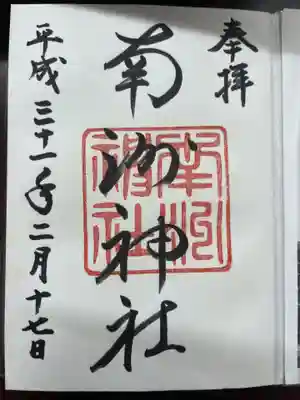 奉拝
南洲神社
平成三十一年二月十七日
南洲
神社